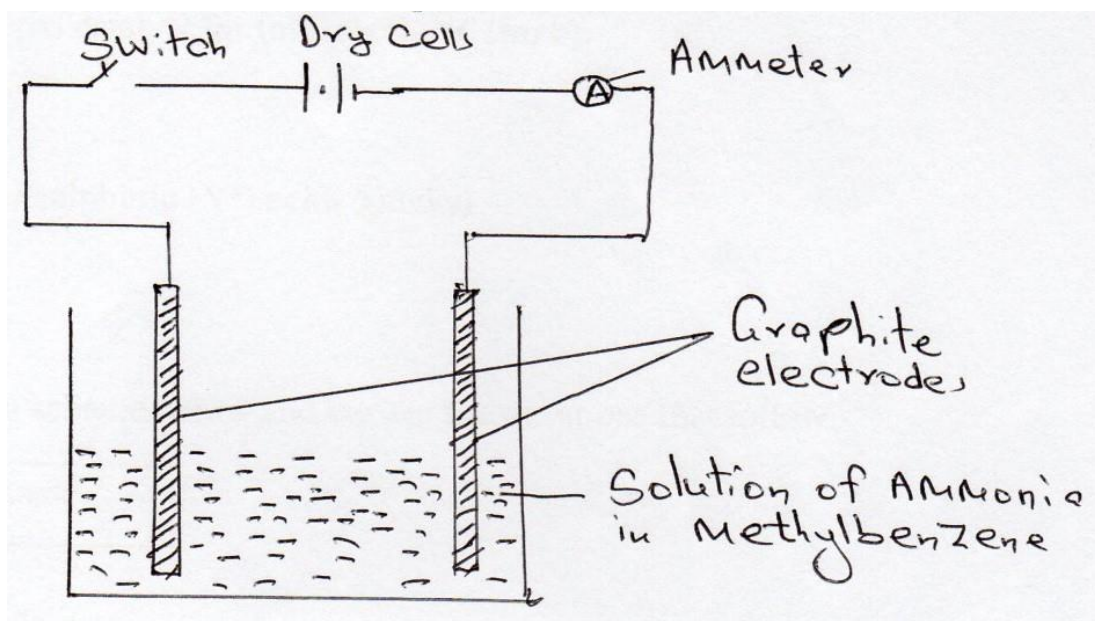 Switch
Dry Cells
Ammeter
A
Graphite
electrodes
Solution of Ammonia
in Methylbenzene